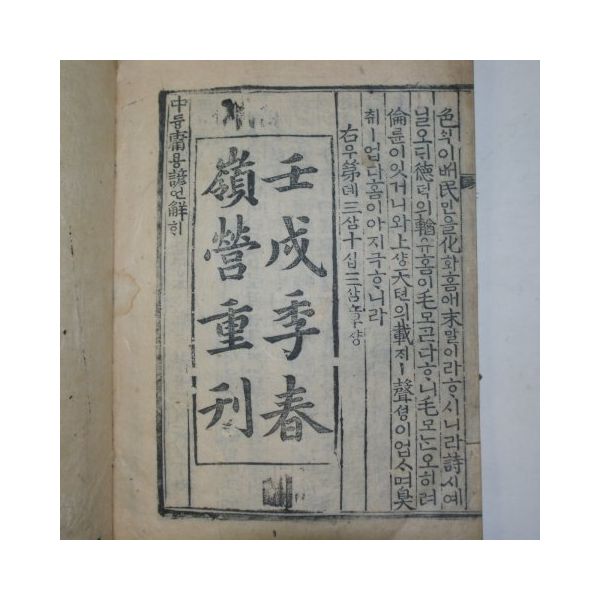 色색이배民민을化화홈애末말이라ᄒᆞ시니라詩시예
닐오ᄃᆡ德덕의輶유홈이毛모ᄀᆞᆮ다ᄒᆞ니毛모ᄂᆞᆫ오히려
倫륜이잇거니와上샹天텬의載ᄌᆡㅣ聲셩이업ᄉᆞ며臭
취ㅣ업다홈이아지극ᄒᆞ니라
右우第뎨三삼十십三삼章쟝
壬戌季春
嶺營重刊
中듕庸용諺언解ᄒᆡ